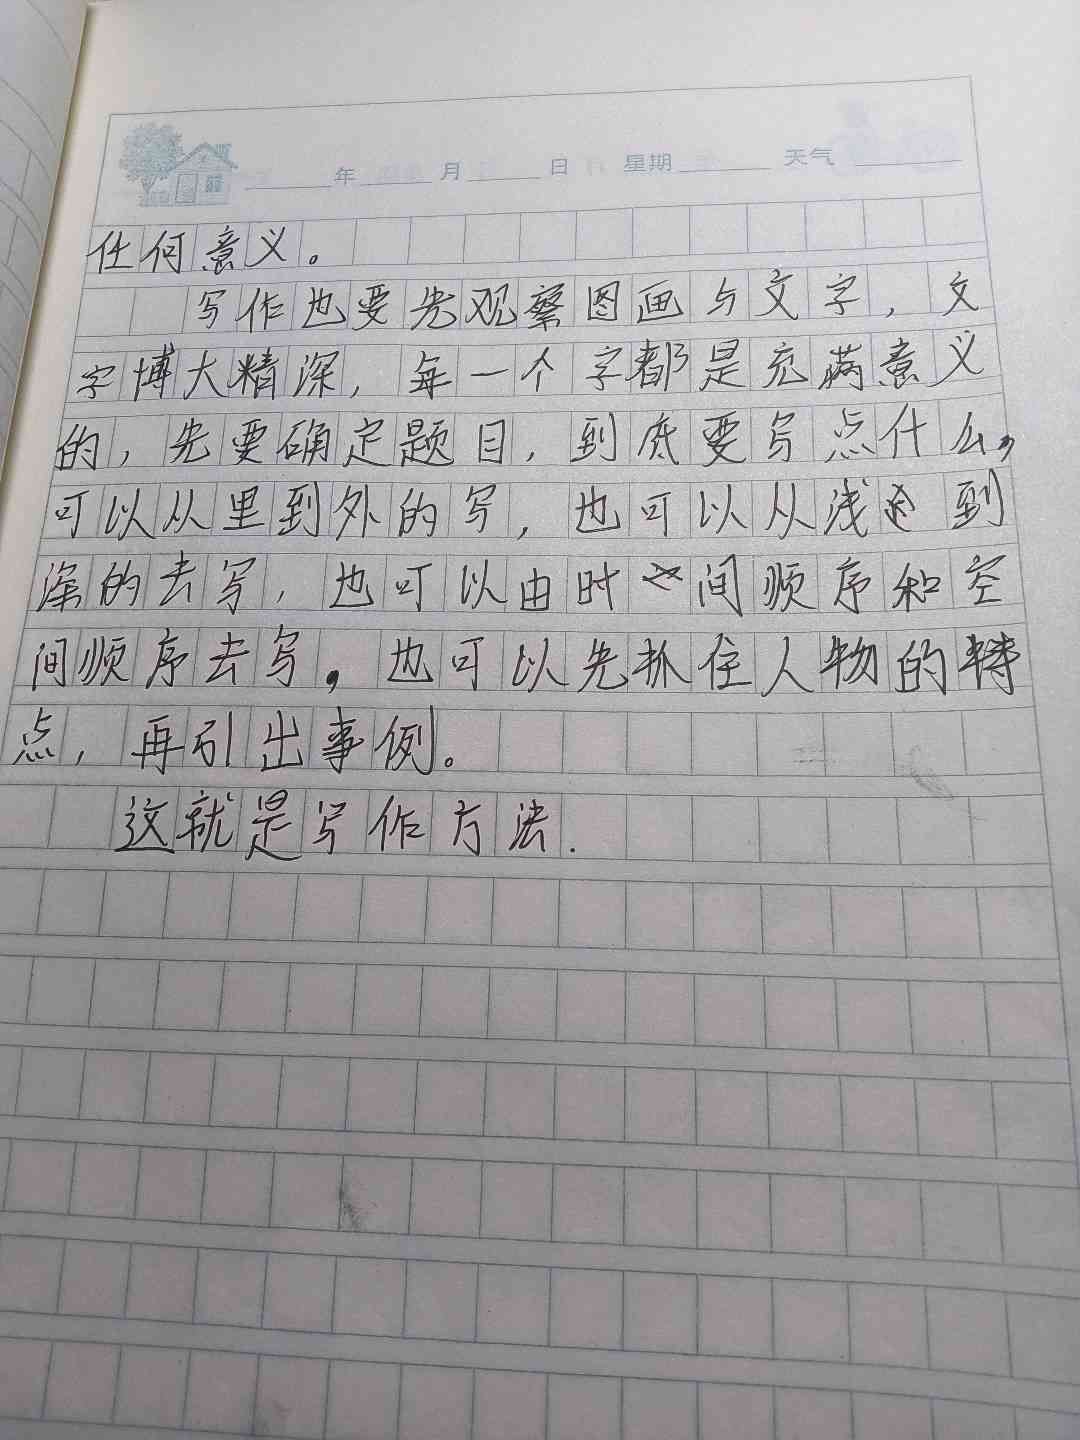 年 月 日 星期 天气
任何意义。
写作也要先观察图画与文字，文
字博大精深，每一个字都是充满意义
的，先要确定题目，到底要写点什么，
可以从里到外的写，也可以从浅到
深的去写，也可以由时间顺序和空
间顺序去写，也可以先抓住人物的特
点，再引出事例。
这就是写作方法.